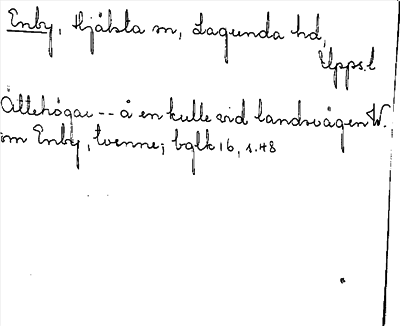 Enby, Hjälsta sn, Lagunda hd,
Upps.l
Ättehögar -- å en kulle vid landsvägen W.
om Enby, tvenne; bglk 16, s. 48